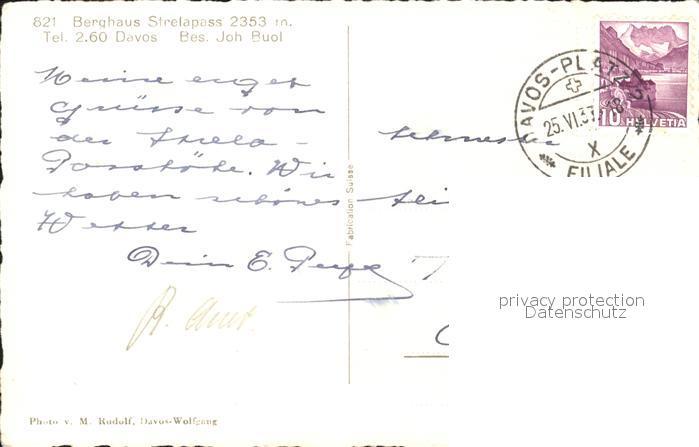 821 Berghaus Strelapass 2353 m.
Tel. 2.60 Davos Bes. Joh Buol
Grüsse von
der Strela-
Passhöhe. Wir
haben schönes
Wetter
Dein E.
Schwester
Fabrication Suisse
DAVOS-PLATZ 2
25.VI.37
X
FILIALE
10 HELVETIA
privacy protection
Datenschutz
Photo v. M. Rudolf, Davos-Wolfgang